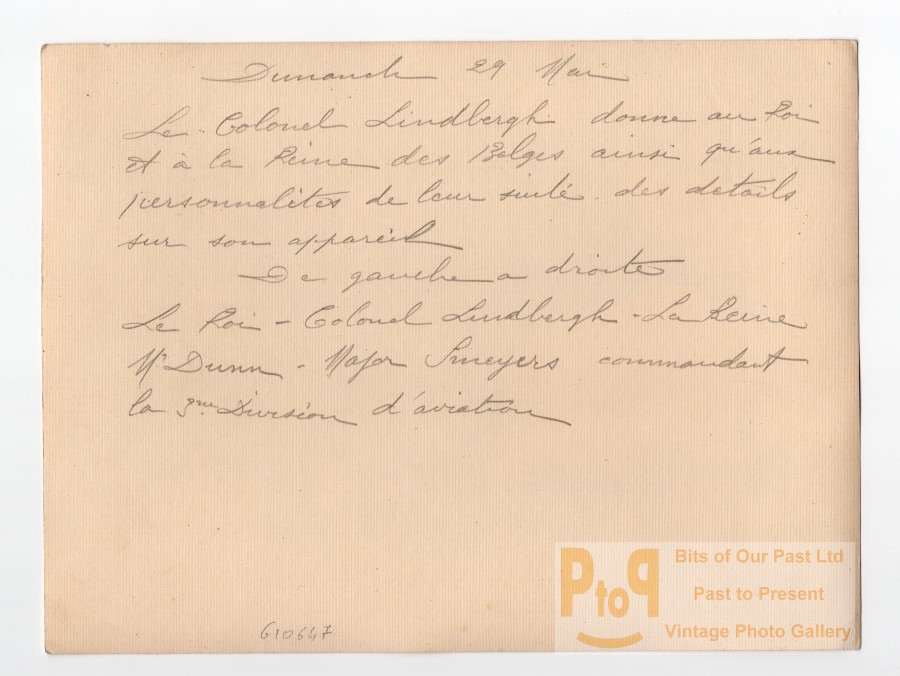 Dimanche 29 Mai
Le Colonel Lindbergh donne au Roi
et à la Reine des Belges ainsi qu'aux
personnalités de leur suite des details
sur son appareil
De gauche a droite
Le Roi - Colonel Lindbergh - La Reine
Mr Dunn - Major Smeyers commandant
la 3me Division d'aviation
610647
PtoP
Bits of Our Past Ltd
Past to Present
Vintage Photo Gallery